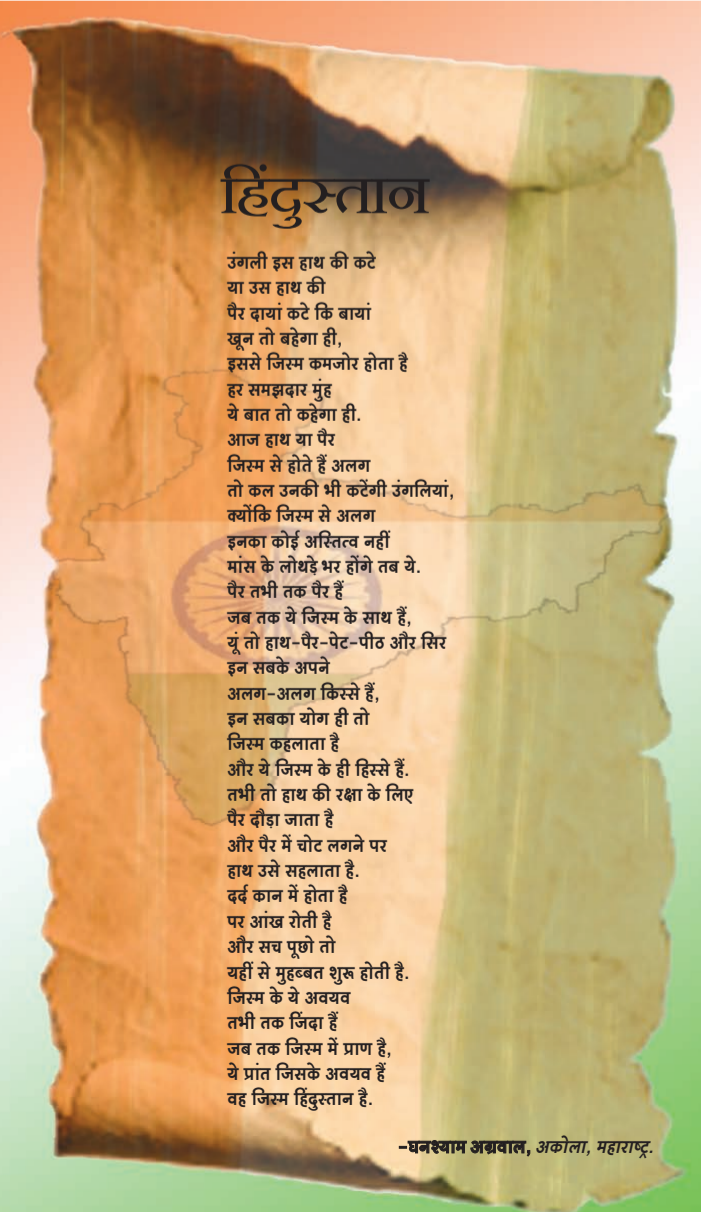 हिंदुस्तान
उंगली इस हाथ की कटे
या उस हाथ की
पैर दायां कटे कि बायां
खून तो बहेगा ही,
इससे जिस्म कमजोर होता है
हर समझदार मुंह
ये बात तो कहेगा ही.
आज हाथ या पैर
जिस्म से होते हैं अलग
तो कल उनकी भी कटेंगी उंगलियां,
क्योंकि जिस्म से अलग
इनका कोई अस्तित्व नहीं
मांस के लोथड़े भर होंगे तब ये.
पैर तभी तक पैर हैं
जब तक ये जिस्म के साथ हैं,
यूं तो हाथ-पैर-पेट-पीठ और सिर
इन सबके अपने
अलग-अलग किस्से हैं,
इन सबका योग ही तो
जिस्म कहलाता है
और ये जिस्म के ही हिस्से हैं.
तभी तो हाथ की रक्षा के लिए
पैर दौड़ा जाता है
और पैर में चोट लगने पर
हाथ उसे सहलाता है.
दर्द कान में होता है
पर आंख रोती है
और सच पूछो तो
यहीं से मुहब्बत शुरू होती है.
जिस्म के ये अवयव
तभी तक जिंदा हैं
जब तक जिस्म में प्राण है,
ये प्रांत जिसके अवयव हैं
वह जिस्म हिंदुस्तान है.
-घनश्याम अग्रवाल, अकोला, महाराष्ट्र.